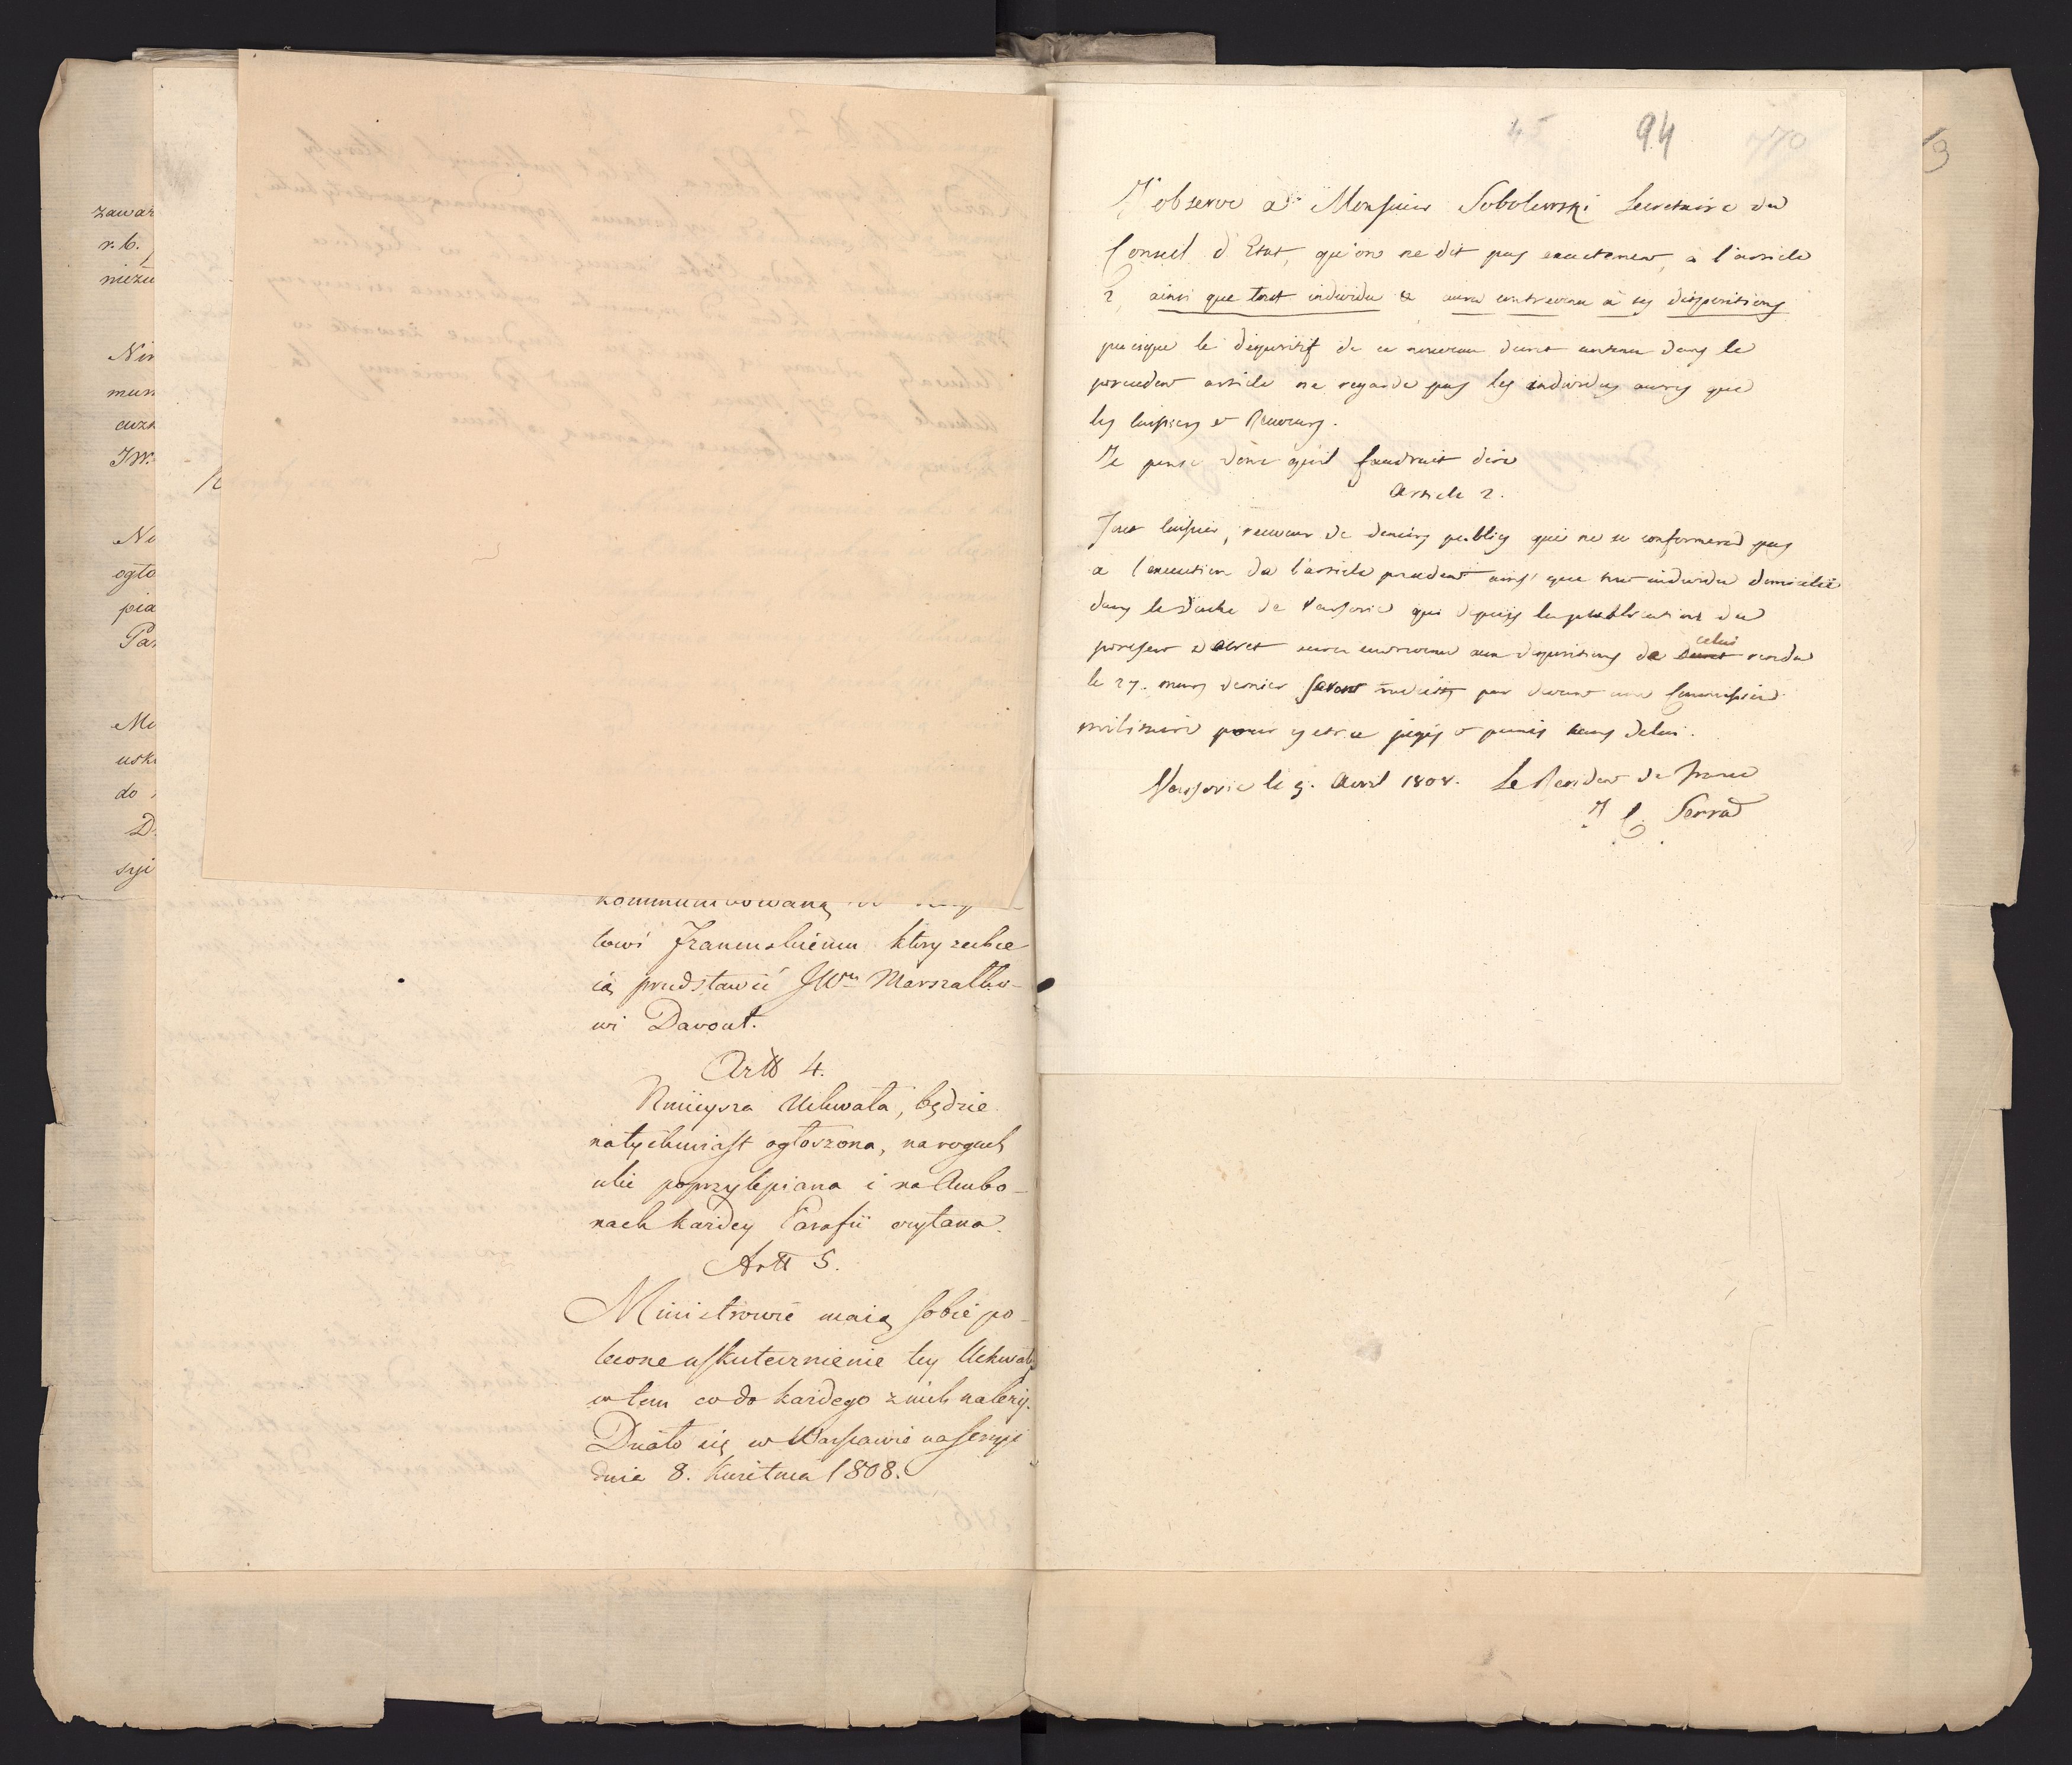 zawar
r. b.
nieżu
Nin
mun
cuzk
JW.
No
ogło
pia
Pa
Mo
usk
do
D
syi
kommunikowaną
towi Francuskiemu który zechce
ią przedstawić JWu Marszałko-
wi Davout.
Artt 4.
Ninieysza Uchwała, będzie
natychmiast ogłoszona, na rogach
ulic poprzylepiana i na Ambo-
nach każdey Parafii czytana.
Artt 5.
Ministrowie maią sobie po-
lecone uskutecznienie tey Uchwały
w tem co do każdego z nich należy.
Działo się w Warszawie na Sessyi
dnia 8. Kwietnia 1808.
45 94 770
13
J'observe à Monsieur Sobolewski Secretaire du
Conseil d'Etat, qu'on ne dit pas exactement, à l'article
2, ainsi que tout individu & aura contrevenu à ses dispositions
puisque le dispositif de ce nouveau decret contenu dans le
precedent article ne regarde pas les individus autres que
les caissiers et Receveurs.
Je pense donc qu'il faudrait dire
Article 2.
Tout caissier, receveur de deniers publics qui ne se conformerad pas
a l'execution de l'article precedent ainsi que tout individu domicilié
dans le Duché de Varsovie qui depuis la publication du
present decret aura contrevenu aux dispositions de decret celui rendu
le 27. mars dernier seront traduits par devant une Commission
militaire pour y etre jugés & punis sans delai.
Varsovie le 9. Avril 1808. Le Resident de France
J C. Serra